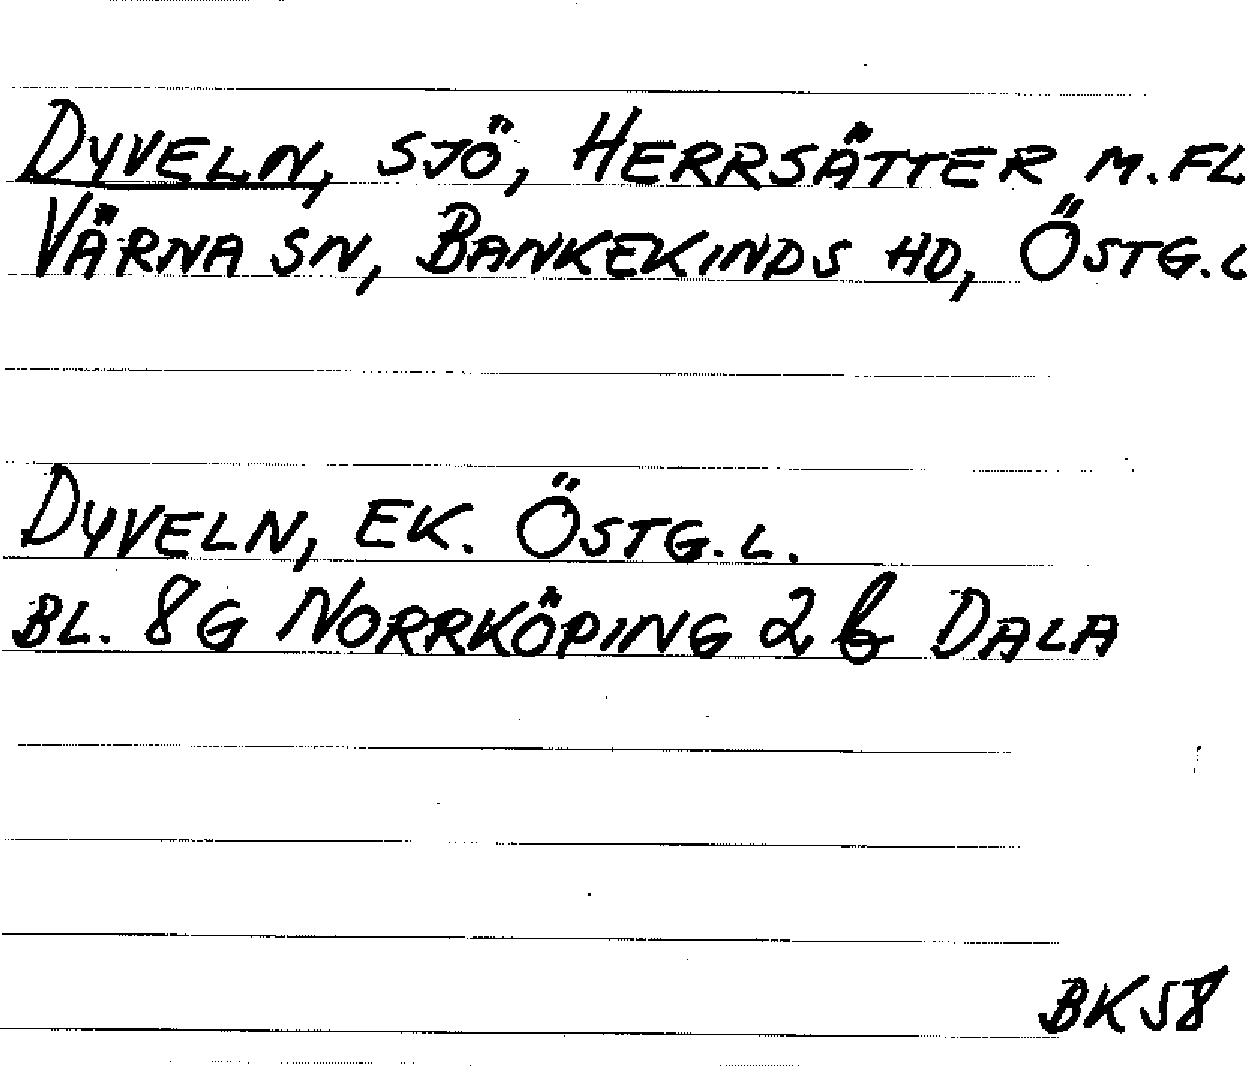 DYVELN, SJÖ, HERRSÄTTER M.FL
VÄRNA SN, BANKEKINDS HD, ÖSTG.L
DYVELN, EK. ÖSTG.L.
BL. 8G NORRKÖPING 2b DALA
BK58